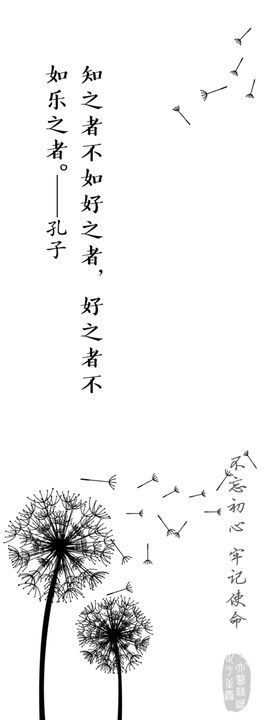 知之者不如好之者，好之者不
如乐之者。——孔子
不忘初心 牢记使命